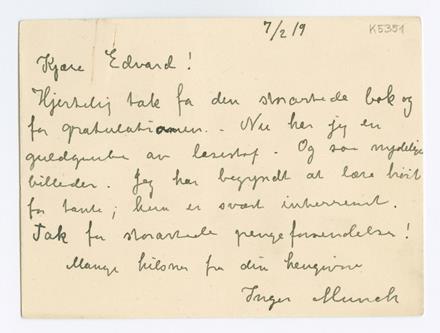 7/2 19
K5351
Kjære Edvard!
Hjertelig tak for den storartede bok og
for gratulationen. - Nu har jeg en
guldgrube av læsestof. Og saa nydelige
billeder. Jeg har begyndt at læse høit
for tante; hun er svært interesseret.
Tak for storartede pengeforsendelser!
Mange hilsner fra din hengivne
Inger Munch